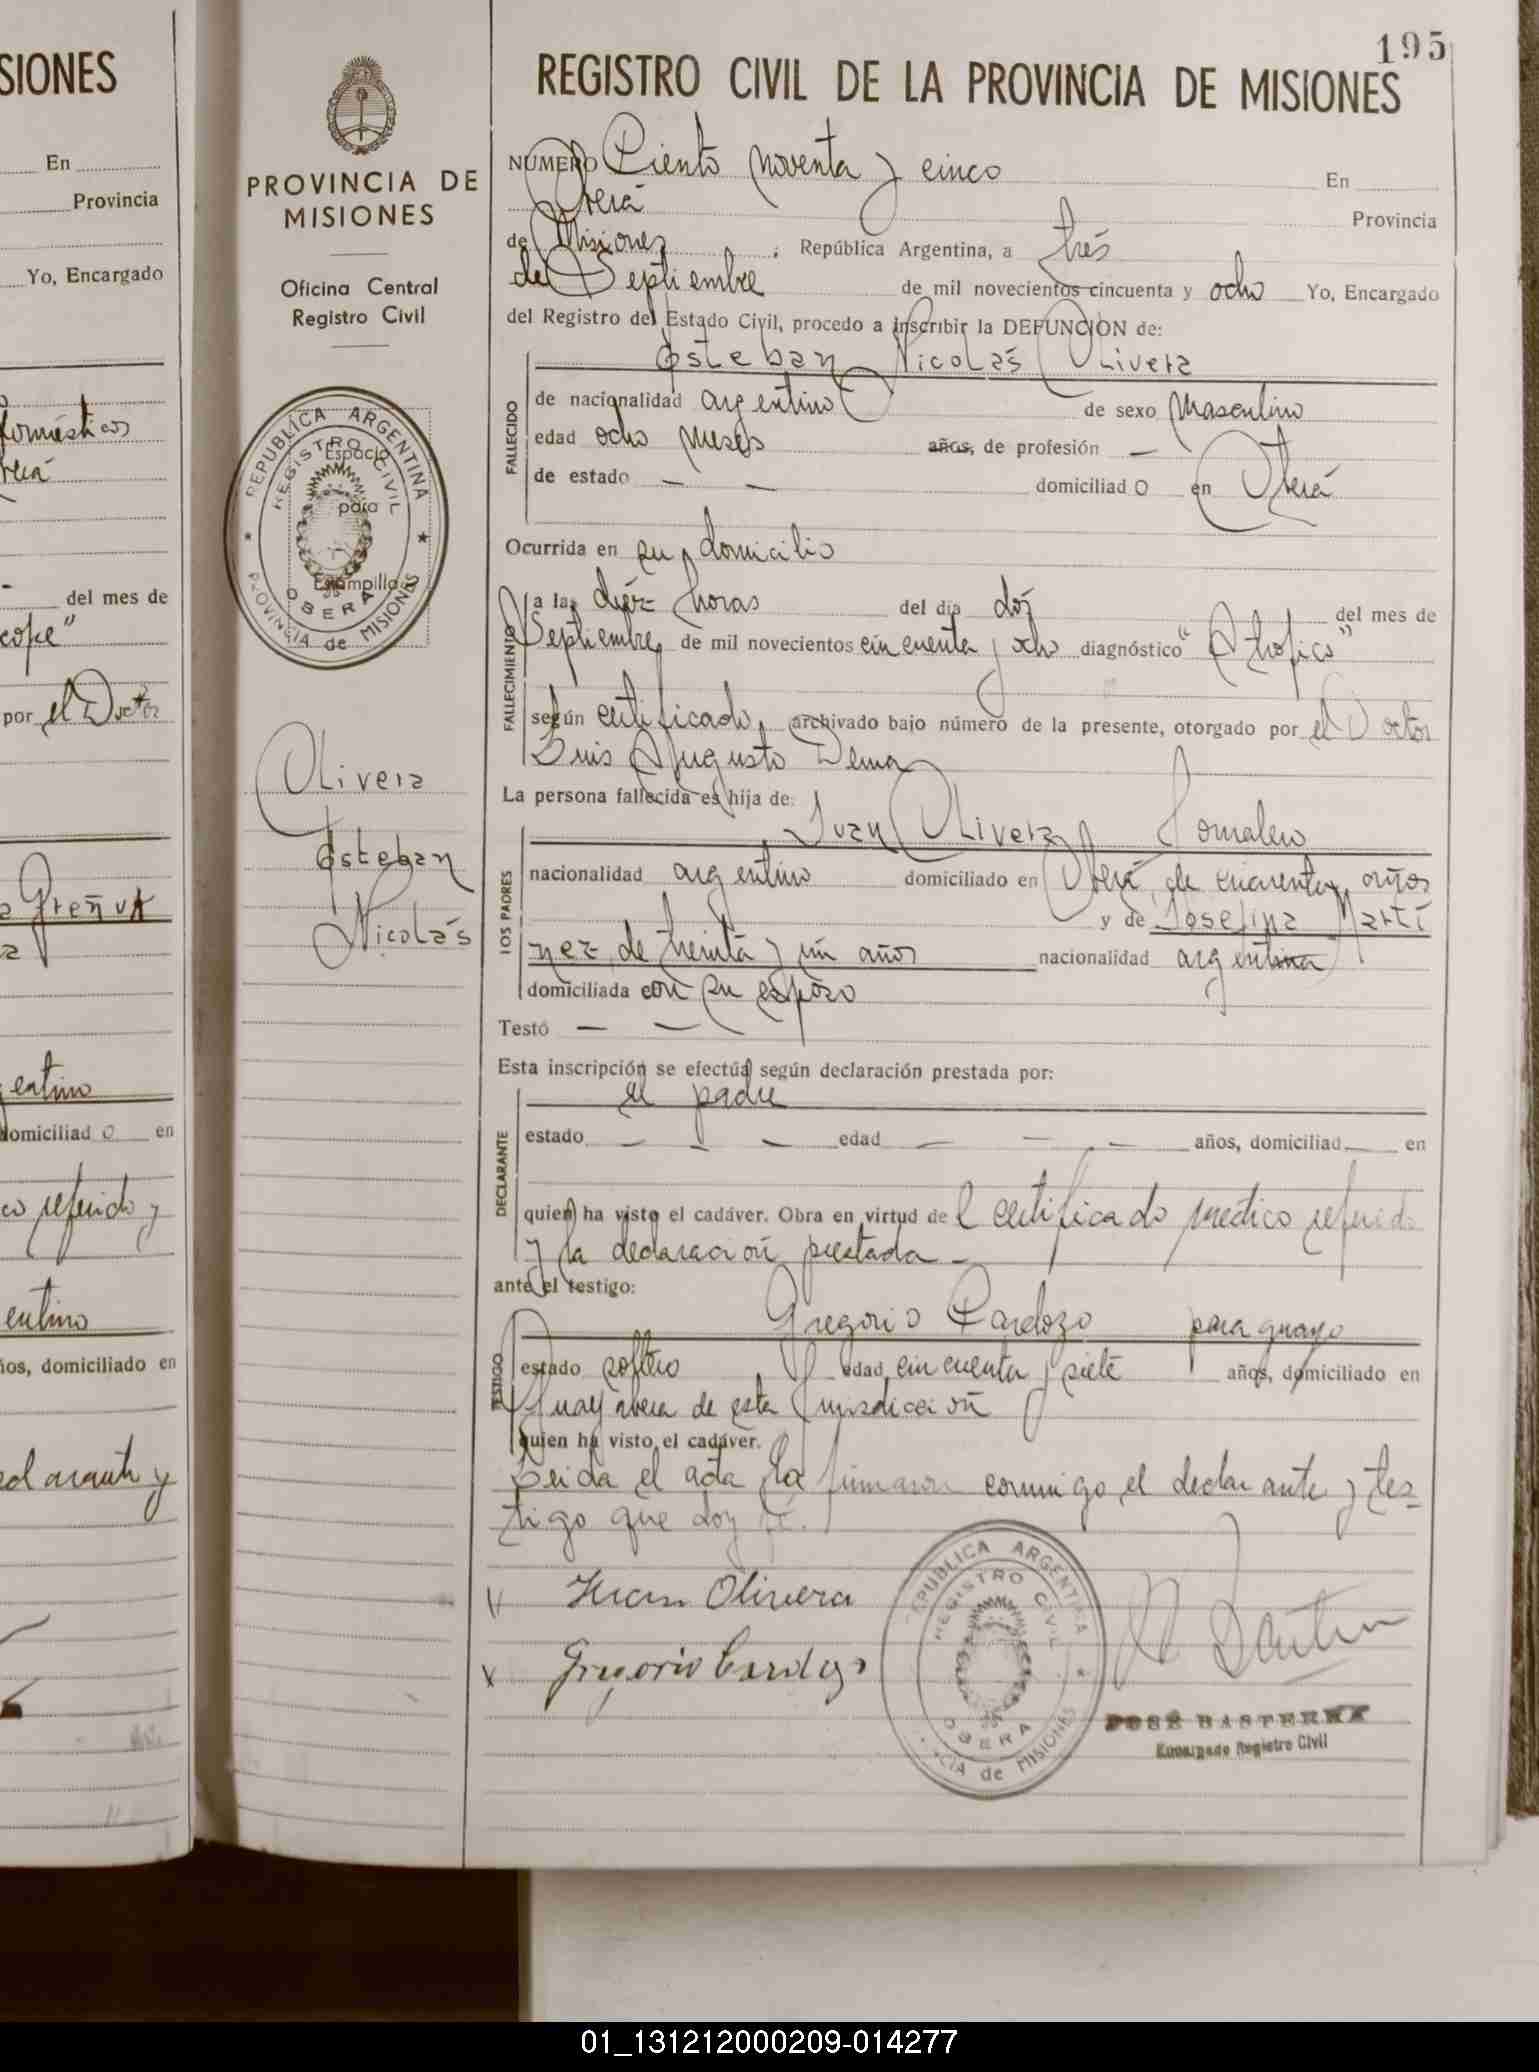 SIONES
En
Provincia
Yo, Encargado
domésticos
del mes de
cope"
por el Doctor
Greñuk
entino
domiciliad o en
co referido y
entino
ños, domiciliado en
eclarante y
PROVINCIA DE
MISIONES
Oficina Central
Registro Civil
REPUBLICA ARGENTINA
REGISTRO CIVIL
Espacio
para
Estampilla
OBERA
PROVINCIA de MISIONES
Olivera
Esteban
Nicolás
195
REGISTRO CIVIL DE LA PROVINCIA DE MISIONES
NUMERO Ciento noventa y cinco En
Oberá Provincia
de Misiones, República Argentina, a trés
de Septiembre de mil novecientos cincuenta y ocho Yo, Encargado
del Registro del Estado Civil, procedo a inscribir la DEFUNCION de:
Esteban Nicolás Olivera
FALLECIDO
de nacionalidad argentino de sexo Masculino
edad ocho meses años, de profesión —
de estado — — domiciliad o en Oberá
Ocurrida en su domicilio
FALLECIMIENTO
a las diéz horas del día dos del mes de
Septiembre de mil novecientos cincuenta y ocho diagnóstico "Atrofico"
según certificado archivado bajo número de la presente, otorgado por el Doctor
Luis Augusto Dema
La persona fallecida es hija de:
Juan Olivera Jornalero
LOS PADRES
nacionalidad argentino domiciliado en Oberá, de cuarenta años
y de Josefina Martí
nez de treinta y un años nacionalidad argentina
domiciliada con su esposo
Testó — —
Esta inscripción se efectúa según declaración prestada por:
el padre
DECLARANTE
estado — — — edad — — — años, domiciliad — en
quien ha visto el cadáver. Obra en virtud de l certificado médico referido
y la declaración prestada —
ante el testigo:
Gregorio Cardozo paraguayo
TESTIGO
estado soltero edad cincuenta y siete años, domiciliado en
Guayabera de esta jurisdicción
quien ha visto el cadáver.
Leida el acta la firmaron conmigo el declarante y tes-
tigo que doy fé.
Juan Olivera
Gregorio Cardozo
REPUBLICA ARGENTINA
REGISTRO CIVIL
OBERA
CIA de MISIONES
JOSÉ BASTERRA
Encargado Registro Civil
01_131212000209-014277